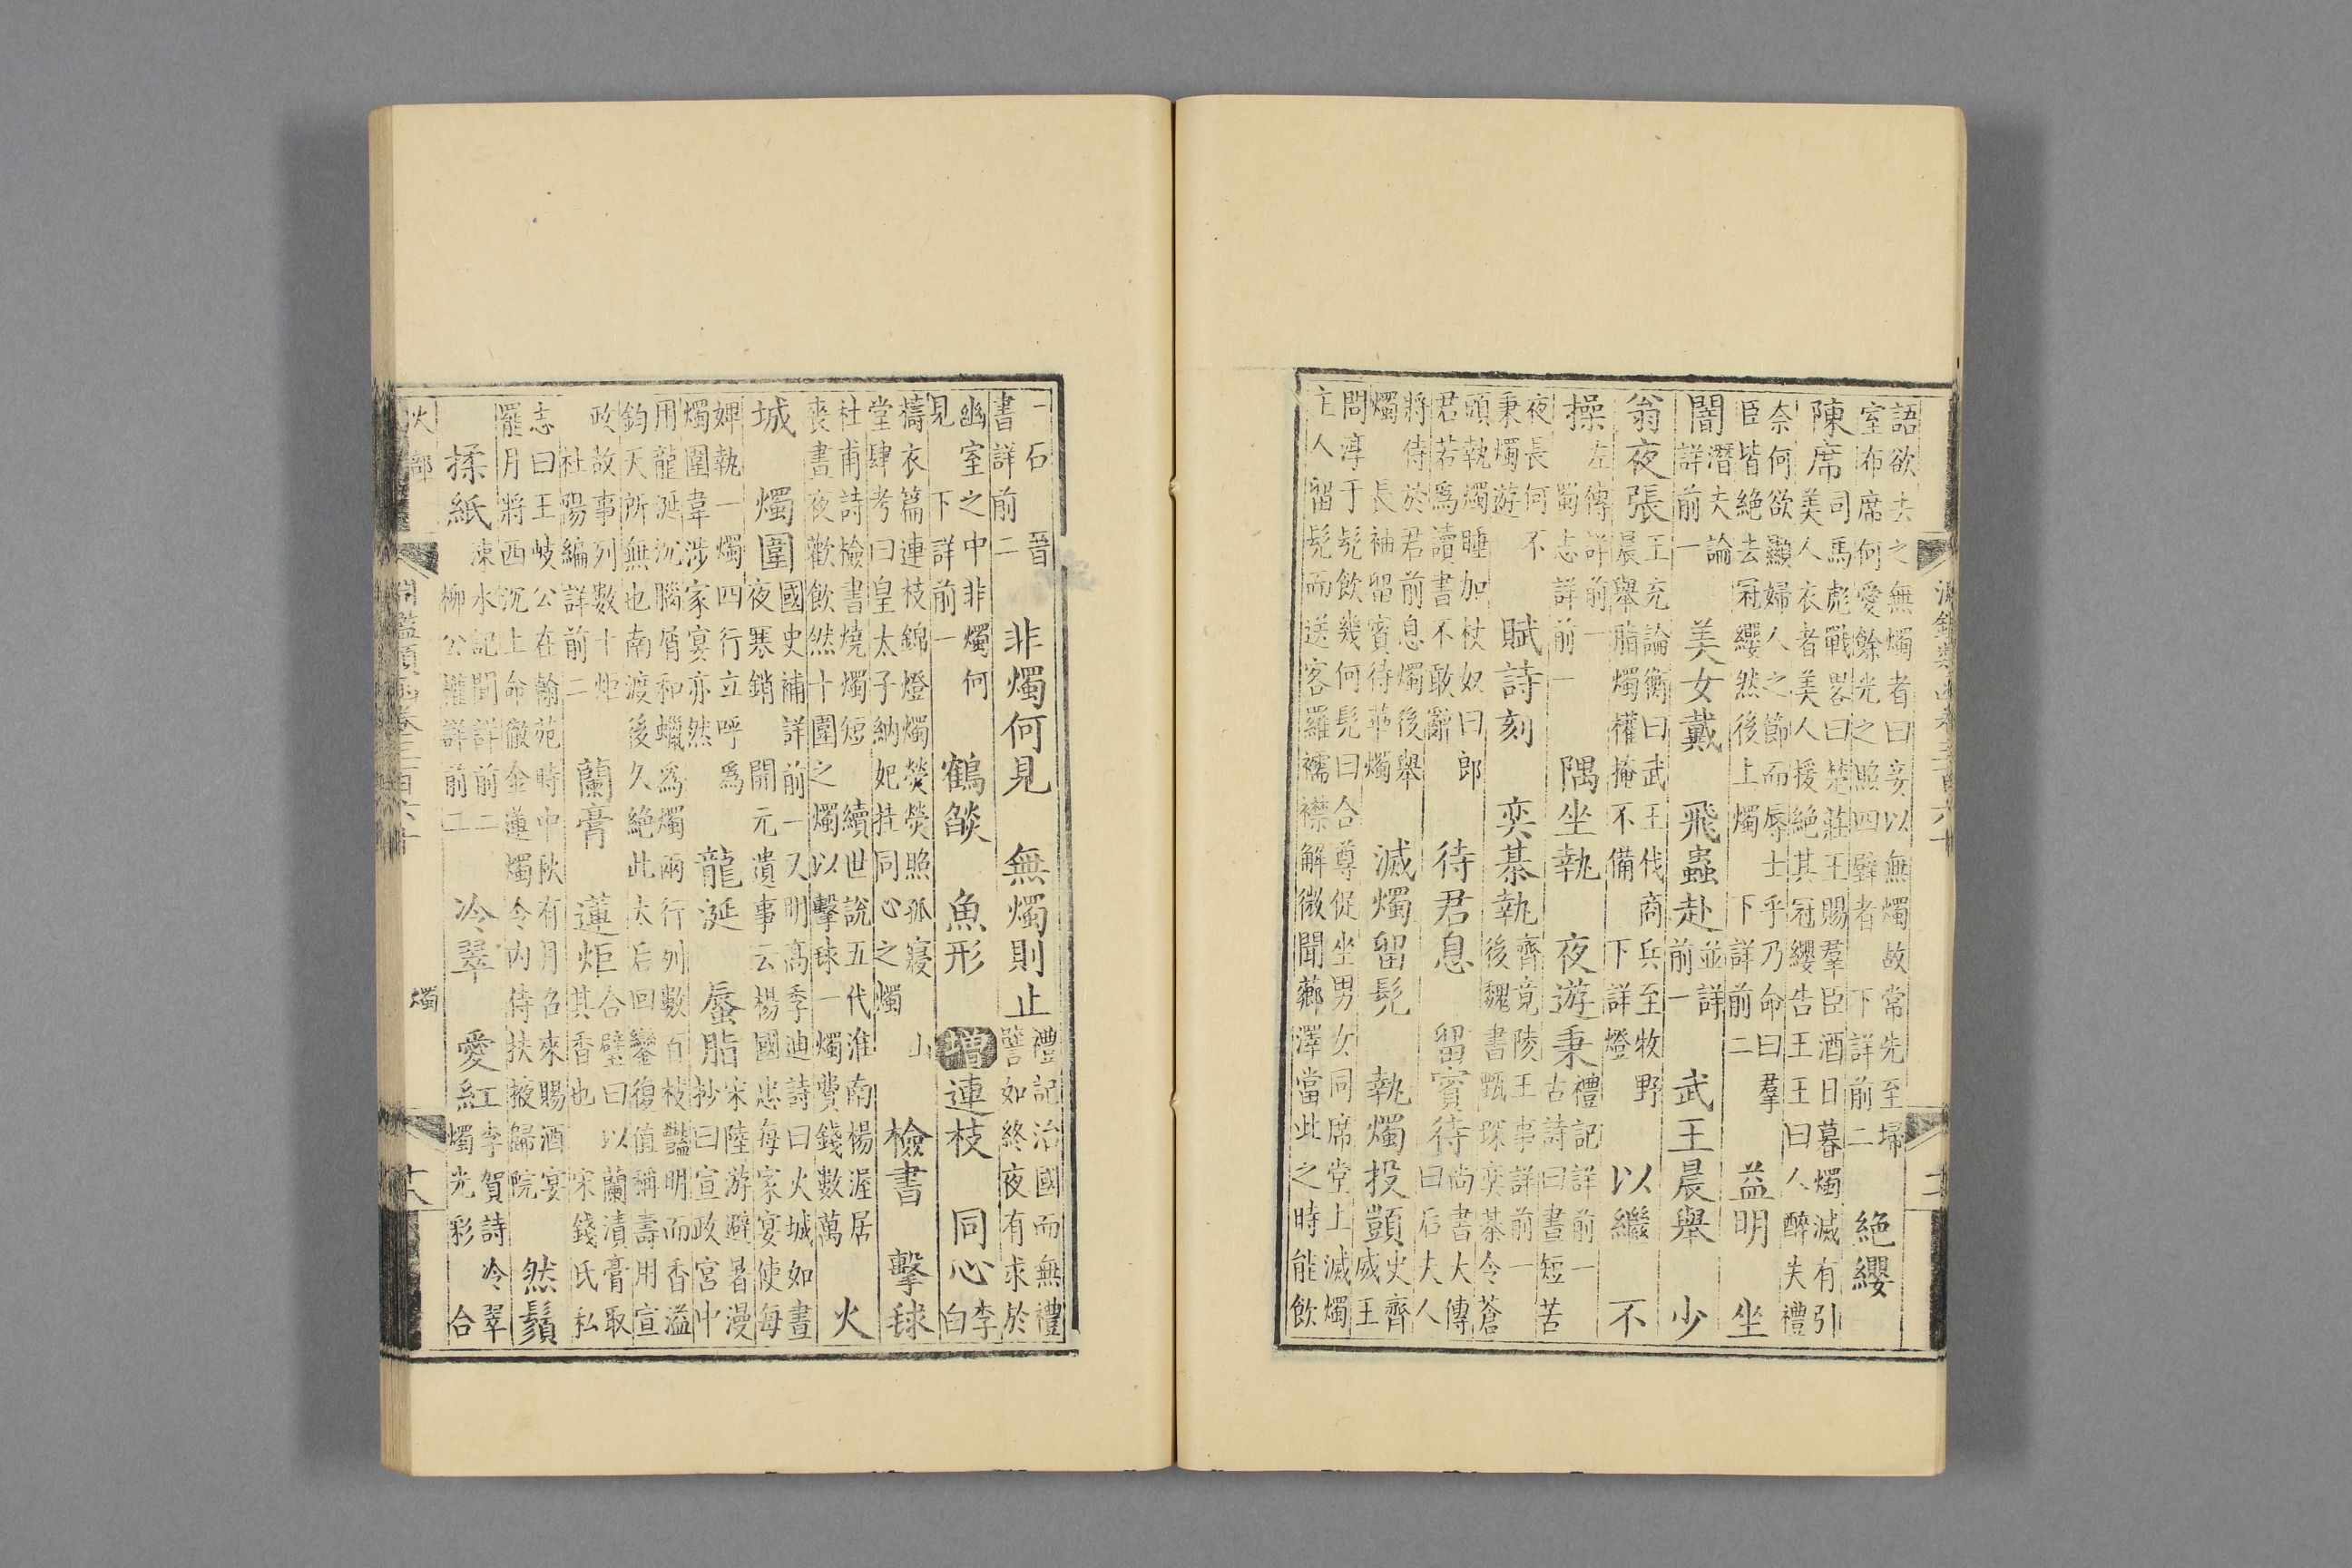 語欲去之無燭者曰妾以無燭故常先至埽
室布席何愛餘光之照四壁者 下詳前二
絶纓
陳席
司馬彪戰畧曰楚莊王賜羣臣酒日暮燭滅有引
美人衣者美人援絶其冠纓告王王曰人醉失禮
奈何欲顯婦人之節而辱士乎乃命曰羣
臣皆絶去冠纓然後上燭 下詳前二
益明 坐
闇
潛夫論
詳前一
美女戴 飛蟲赴
並詳
前一
武王晨舉 少
翁夜張
王充論衡曰武王伐商兵至牧野
晨舉脂燭權掩不備 下詳燈
以繼 不
操
左傳詳前一
蜀志詳前一
隅坐執 夜遊秉
禮記詳前一
古詩曰晝短苦
夜長何不
秉燭遊
賦詩刻 奕棊執
齊竟陵王事詳前一
後魏書甄琛奕棊令蒼
頭執燭睡加杖奴曰郎
君若爲讀書不敢辭
待君息 留賓待
尚書大傳
曰后夫人
將侍於君前息燭後舉
燭 長袖留賓待華燭
滅燭留髡 執燭投顗
史齊
威王
問淳于髡飲幾何髡曰合尊促坐男女同席堂上滅燭
主人留髡而送客羅襦襟解微聞薌澤當此之時能飲
一石 晉
書詳前二
非燭何見 無燭則止
禮記治國而無禮
譬如終夜有求於
幽室之中非燭何
見 下詳前一
鶴燄 魚形 增 連枝 同心
李
白
擣衣篇連枝錦燈燭熒熒照孤寢 山
堂肆考曰皇太子納妃挂同心之燭
檢書 擊毬
杜甫詩檢書燒燭短 續世說五代淮南楊渥居
喪晝夜歡飲然十圍之燭以擊毬一燭費錢數萬
火
城 燭圍
國史補詳前一又明高季迪詩曰火城如晝
夜寒銷 開元遺事云楊國忠每家宴使每
婢執一燭四行立呼爲
燭圍韋涉家宴亦然
龍涎 蜃脂
宋陸游避暑漫
抄曰宣政宮中
用龍涎沉腦屑和蠟爲燭兩行列數百枝豔明而香溢
鈞天所無也南渡後久絶此太后回鑾復值稱壽用宣
政故事列數十炬
社陽編詳前二
蘭膏 蓮炬
合璧曰以蘭漬膏取
其香也 宋錢氏私
志曰王岐公在翰苑時中秋有月召來賜酒宴
罷月將西沉上命徹金蓮燭令内侍扶掖歸院
然鬚
揉紙
涑水記聞詳前二
柳公權詳前二
冷翠 愛紅
李賀詩冷翠
燭光彩合
火部 燭